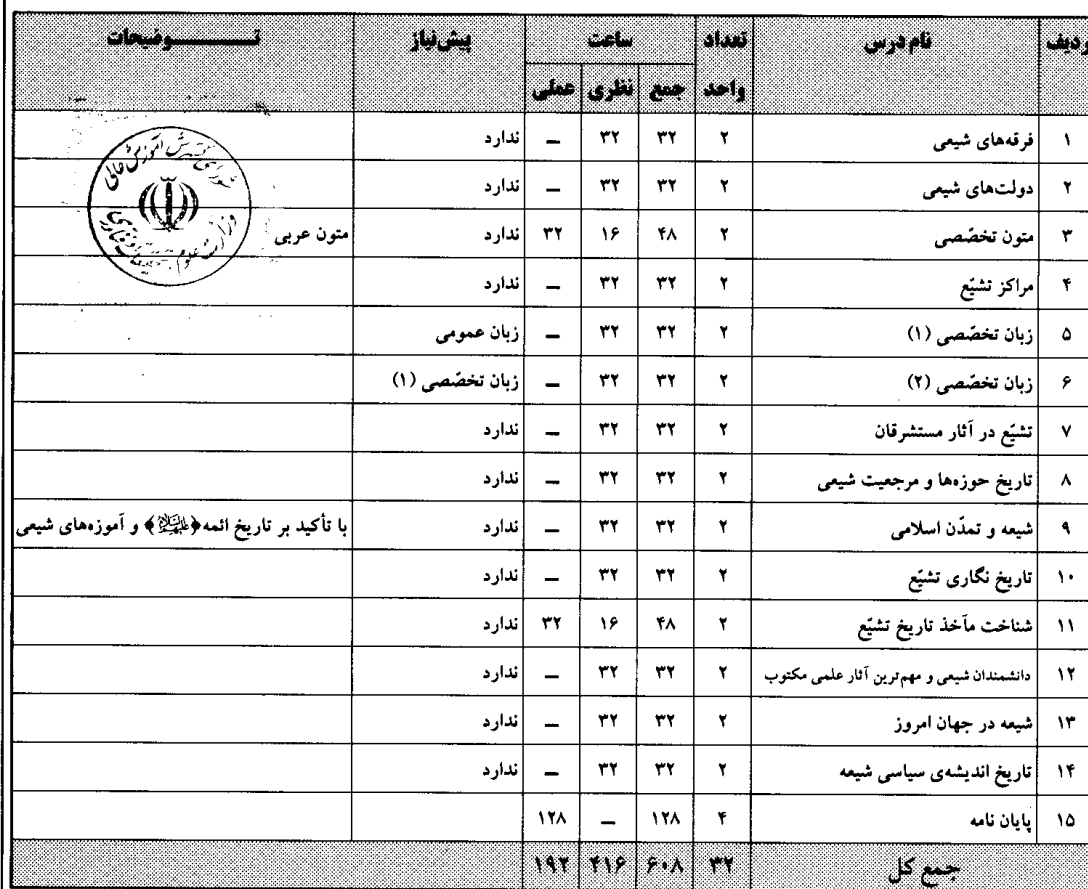 ردیف نام درس تعداد واحد ساعت پیش‌نیاز تـــوضیحات
جمع نظری عملی
۱ فرقه‌های شیعی ۲ ۳۲ ۳۲ – ندارد
۲ دولت‌های شیعی ۲ ۳۲ ۳۲ – ندارد
۳ متون تخصّصی ۲ ۴۸ ۱۶ ۳۲ ندارد متون عربی
۴ مراکز تشیّع ۲ ۳۲ ۳۲ – ندارد
۵ زبان تخصّصی (۱) ۲ ۳۲ ۳۲ – زبان عمومی
۶ زبان تخصّصی (۲) ۲ ۳۲ ۳۲ – زبان تخصّصی (۱)
۷ تشیّع در آثار مستشرقان ۲ ۳۲ ۳۲ – ندارد
۸ تاریخ حوزه‌ها و مرجعیت شیعی ۲ ۳۲ ۳۲ – ندارد
۹ شیعه و تمدّن اسلامی ۲ ۳۲ ۳۲ – ندارد با تأکید بر تاریخ ائمه ﴿علیهم‌السلام﴾ و آموزه‌های شیعی
۱۰ تاریخ نگاری تشیّع ۲ ۳۲ ۳۲ – ندارد
۱۱ شناخت مآخذ تاریخ تشیّع ۲ ۴۸ ۱۶ ۳۲ ندارد
۱۲ دانشمندان شیعی و مهم‌ترین آثار علمی مکتوب ۲ ۳۲ ۳۲ – ندارد
۱۳ شیعه در جهان امروز ۲ ۳۲ ۳۲ – ندارد
۱۴ تاریخ اندیشه‌ی سیاسی شیعه ۲ ۳۲ ۳۲ – ندارد
۱۵ پایان نامه ۴ ۱۲۸ – ۱۲۸
جمع کل ۳۲ ۶۰۸ ۴۱۶ ۱۹۲
شورای گسترش آموزش عالی
وزارت علوم